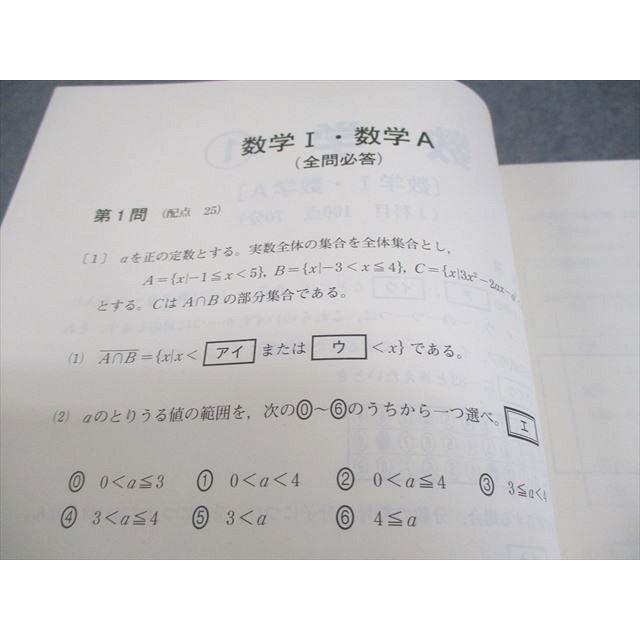 数学Ⅰ・数学A
(全問必答)
第1問 (配点 25)
〔1〕 aを正の定数とする。実数全体の集合を全体集合とし,
A={x|−1≦x<5}, B={x|−3<x≦4}, C={x|3x²−2ax−a
とする。CはA∩Bの部分集合である。
(1) A∩B={x|x< アイ または ウ <x}である。
(2) aのとりうる値の範囲を,次の⓪〜⑥のうちから一つ選べ。 エ
⓪ 0<a≦3 ① 0<a<4 ② 0<a≦4 ③ 3≦a<4
④ 3<a≦4 ⑤ 3<a ⑥ 4≦a